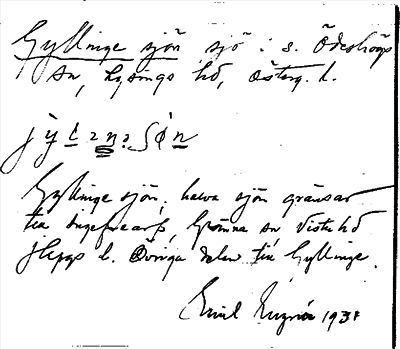 Gyllinge sjön sjö i s. Ödeshögs
sn, Lysings hd, Österg. l.
Gyllinge sjön, halva sjön gränsar
till Ingefrearp, Gränna sn Vista hd
Jkpgs l. Övriga delen till Gyllinge.
Emil 1931